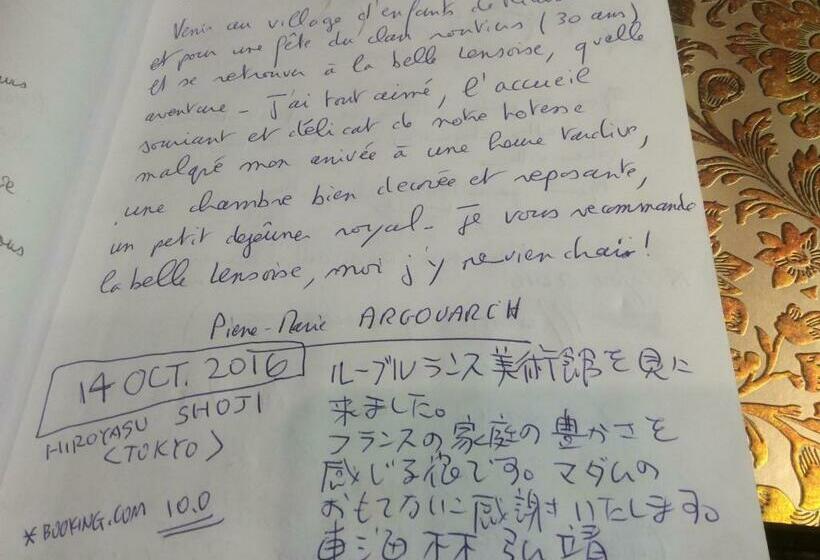 Venir au village d'enfants de
et pour une fête du clan routiers (30 ans)
et se retrouver à la belle Lensoise, quelle
aventure - J'ai tout aimé, l'accueil
souriant et délicat de notre hotesse
malgré mon arrivée à une heure tardive,
une chambre bien decorée et reposante,
un petit dejeûner royal - Je vous recommande
la belle Lensoise, moi j'y reviendrai !
Pierre-Marie ARGOUARCH
14 OCT. 2016
HIROYASU SHOJI
<TOKYO>
* BOOKING.COM 10.0
ルーブルランス美術館を見に
来ました。
フランスの家庭の豊かさを
感じる宿です。マダムの
おもてなしに感謝いたします。
東海林 弘靖